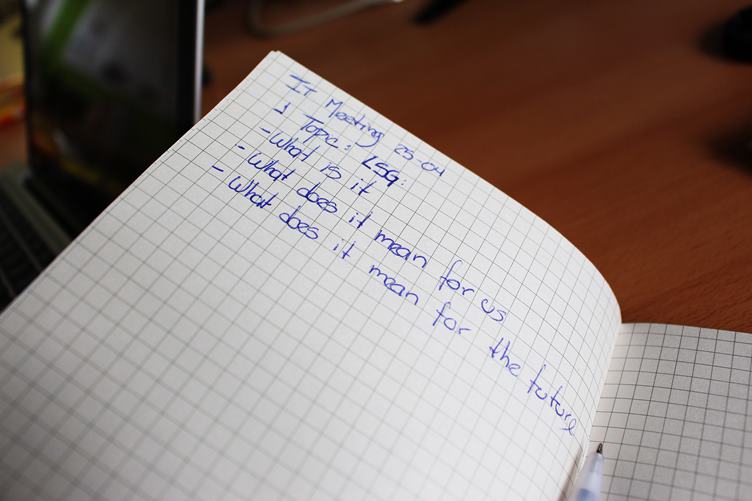 IT Meeting 25-04
- 1 Topic: LSG:
- What is it
- What does it mean for us
- What does it mean for the future